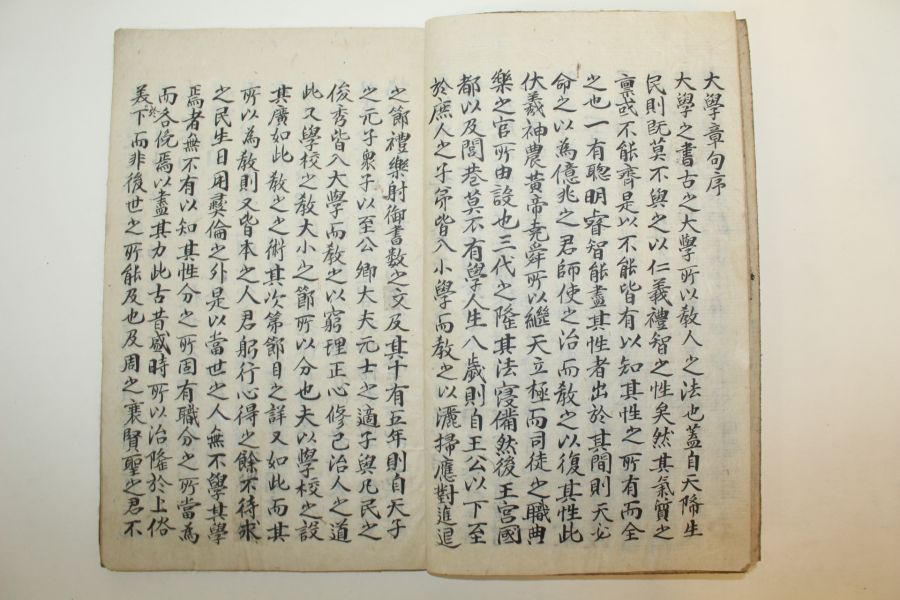 大學章句序
大學之書古之大學所以教人之法也蓋自天降生
民則旣莫不與之以仁義禮智之性矣然其氣質之
稟或不能齊是以不能皆有以知其性之所有而全
之也一有聰明睿智能盡其性者出於其間則天必
命之以爲億兆之君師使之治而教之以復其性此
伏羲神農黃帝堯舜所以繼天立極而司徒之職典
樂之官所由設也三代之隆其法寖備然後王宮國
都以及閭巷莫不有學人生八歲則自王公以下至
於庶人之子弟皆入小學而教之以灑掃應對進退
之節禮樂射御書數之文及其十有五年則自天子
之元子衆子以至公卿大夫元士之適子與凡民之
俊秀皆入大學而教之以窮理正心修己治人之道
此又學校之教大小之節所以分也夫以學校之設
其廣如此教之之術其次第節目之詳又如此而其
所以爲教則又皆本之人君躬行心得之餘不待求
之民生日用彛倫之外是以當世之人無不學其學
焉者無不有以知其性分之所固有職分之所當爲
而各俛焉以盡其力此古昔盛時所以治隆於上俗
美於下而非後世之所能及也及周之衰賢聖之君不